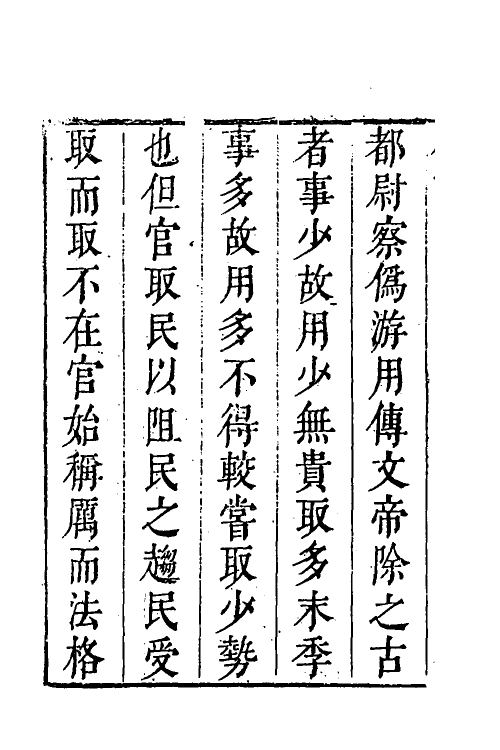 都尉察僞游用傳文帝除之古
者事少故用少無貴取多末季
事多故用多不得較嘗取少勢
也但官取民以阻民之趨民受
取而取不在官始稱厲而法格